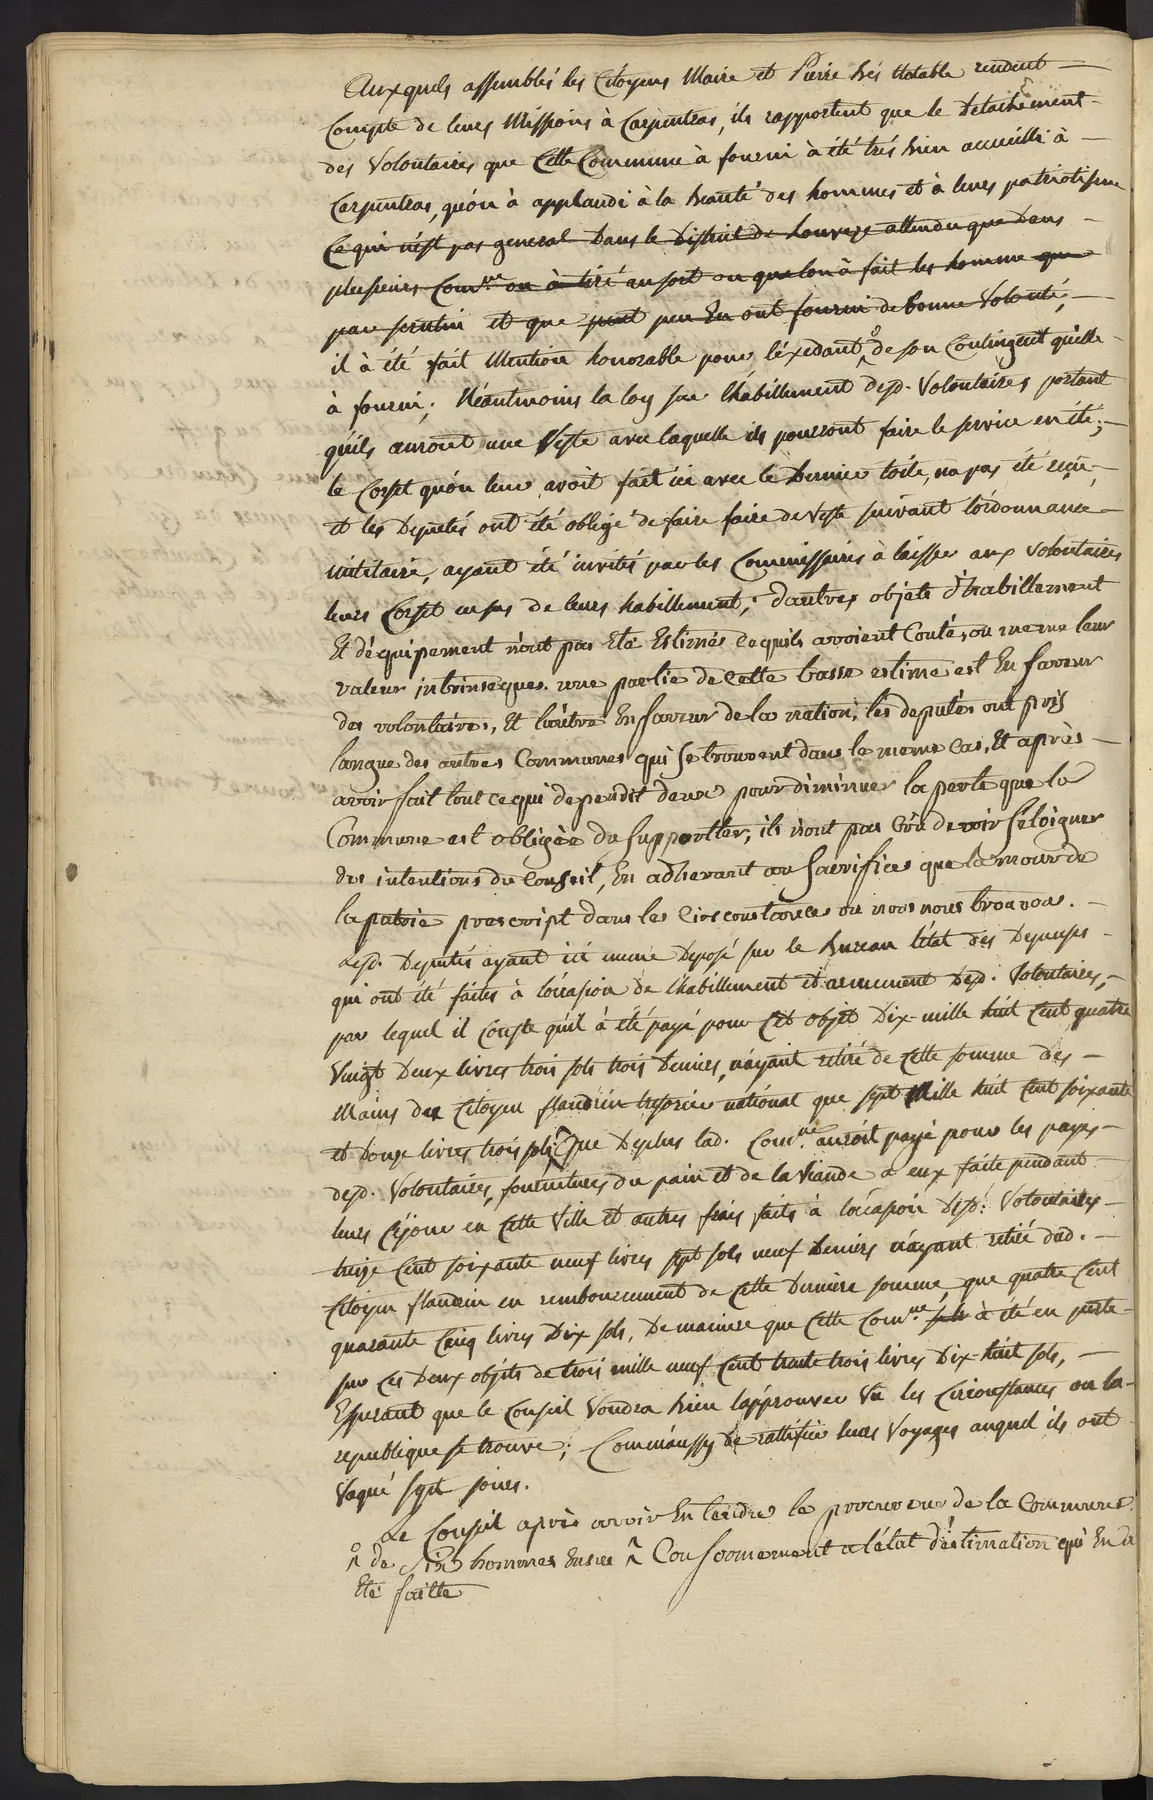 Auxquels assemblés les Citoyens Maire et Pierre Brés Notable rendent
Compte de leurs Missions à Carpentras, ils rapportent que le Detachement
des Volontaires que Cette Commune à fourni à été trés bien accueilli à
Carpentras, qu'on à applaudi à la beauté des hommes et à leurs patriotisme
Ce qui n'est pas general Dans le District de Louveze attendu que Dans
plusieurs Com.ne on à tiré au sort ou que lon à fait les homme que
par scrutin et que peut peu En ont fourni de bonne Volonté,
il à été fait Mention honorable pour l'éxedant, de son Contingent qu'elle
à fourni; Néantmoins la loy sur l'habillement desd. Volontaires portant
qu'ils auront une Veste avec laquelle ils pourront faire le service en été;
le Corset qu'on leur avoit fait ici avec le Dernier toile, na pas été reçu,
et les Deputés ont été obligé de faire faire de Veste suivant l'ordonnance
militaire, ayant été invités par les Commissaires à laisser aux Volontaires
leurs Corset en sus de leurs habillement; d'autres objets d'habillement
Et déquipement n'ont pas Eté Estimés cequils avoient Couté, ou meme leur
valeur intrinseques. une partie de Cette basse estime est En faveur
des volontaires, Et l'autre En faveur de la nation; les deputés ont pris
langue des autres Communes qui se trouvent dans le meme Cas, Et après
avoir fait tout ce qui dependit d'eux pour diminuer la perte que la
Commune est obligée de supportter, ils n'ont pas Crû devoir s'éloigner
des intentions du Conseil, En adherant au Sacrifices que lamour de
la patrie prescript dans les Circonstances ou nous nous trouvons.
Lesd. Deputés ayant ici meme Deposé sur le bureau l'état des Depenses
qui ont été faites à l'occasion de l'habillement et armement desd. Volontaires,
par lequel il Conste qu'il à été payé pour Cet objet Dix-mille huit Cent quatre
Vingt Deux livres trois sols trois Deniers, n'ayant retiré de Cette somme des
Mains du Citoyen flandrin tresorier national que sept Mille huit Cent soixante
et Douze livres trois sols; Que Deplus lad. Com.ne auroit payé pour les payes
desd. Volontaires, fournitures du pain et de la Viande à eux faite pendant
leurs Sejour en Cette Ville et autres frais faits à l'occasion desd. Volontaires
treize Cent soixante neuf livres sept sols neuf Deniers n'ayant retiré dud.
Citoyen flandrin en remboursement de Cette Derniere somme, que quatre Cent
quarante Cinq livres Dix sols, De maniere que Cette Com.ne à été en perte
sur Ces Deux objets de trois mille neuf Cent trente trois livres Dix-huit sols,
Esperant que le Conseil Voudra bien l'approuver Vû les Circonstances ou la
republique se trouve; Comme aussy de rattifier leurs Voyages auquel ils ont
Vaqué sept jours.
Le Conseil après avoir Entendre le procureur de la Commune
de Six hommes Ensus Conformement a l'état d'estimation qui En a
Eté faitte